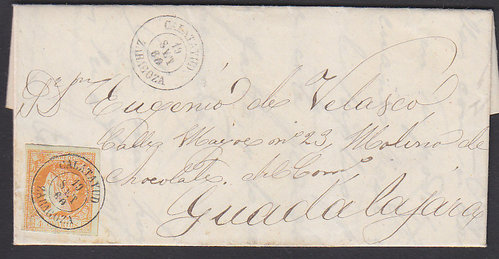 CALATAYUD
19
SET
60
ZARAGOZA
Eugenio de Velasco
Calle Mayor nº 23, Molino de
Chocolate. del Comº
Guadalajara
CALATAYUD
19
SET
60
ZARAGOZA